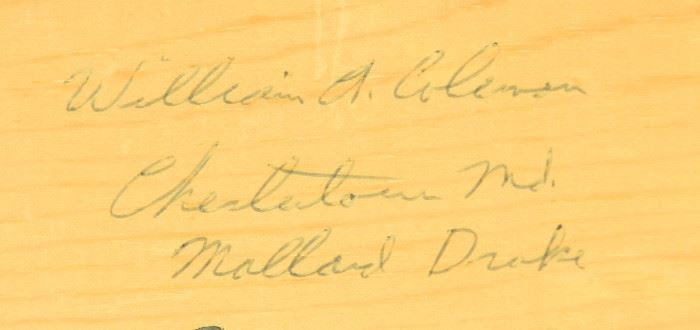 William A. Coleman
Chestertown Md.
Mallard Drake